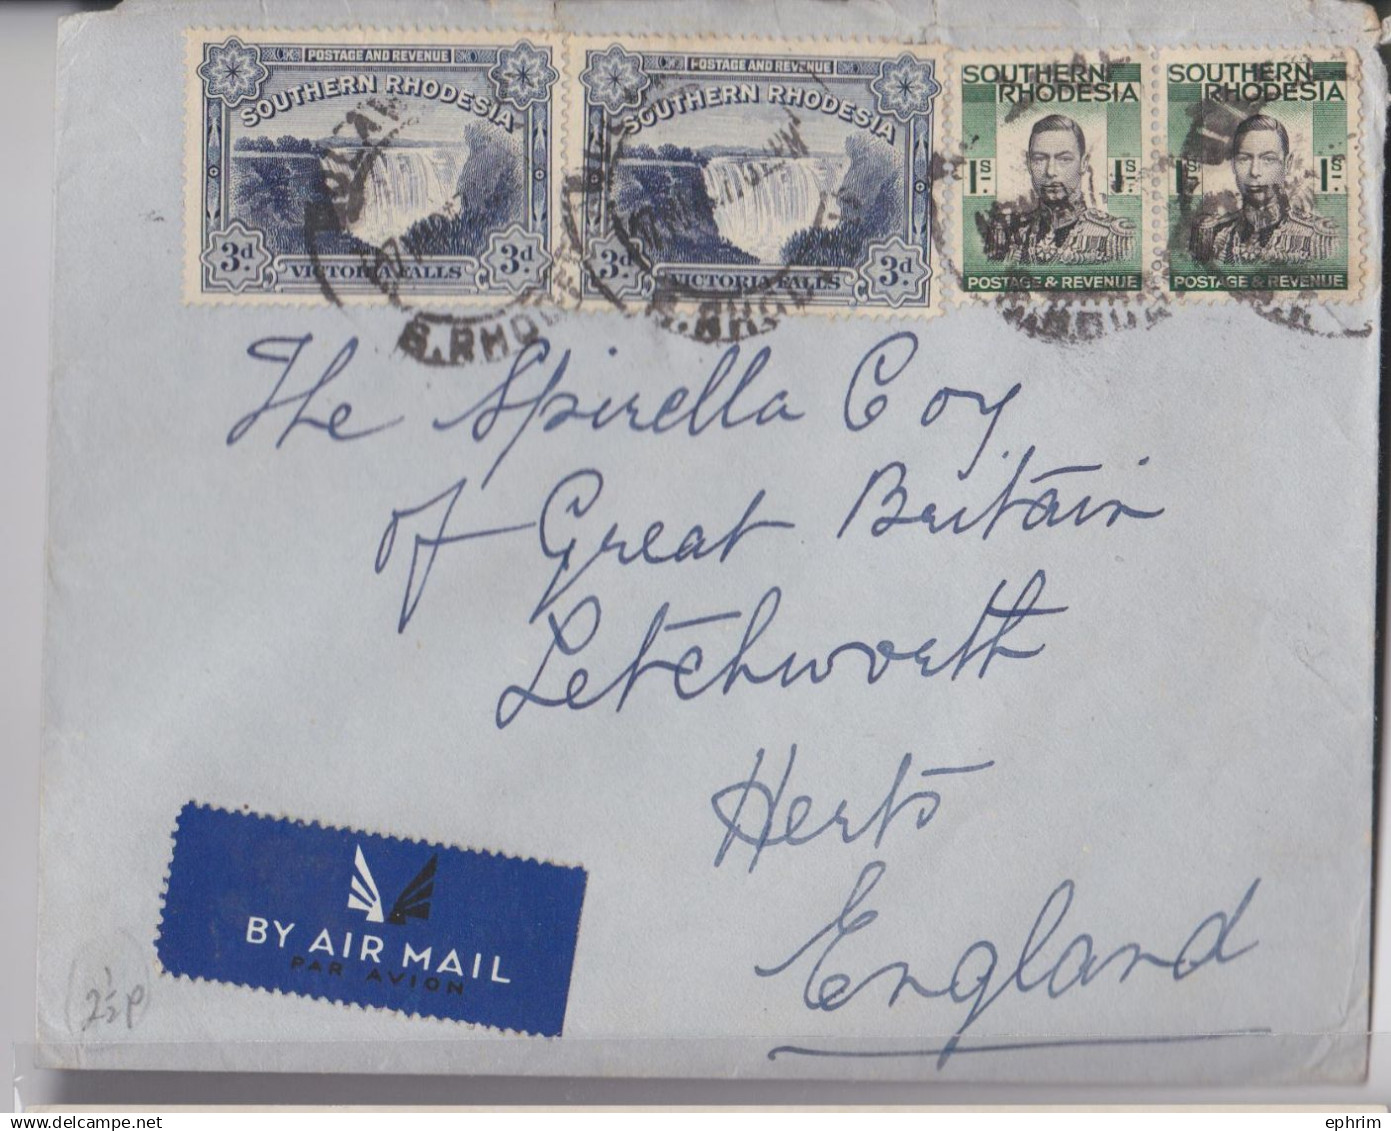 POSTAGE AND REVENUE
SOUTHERN RHODESIA
3d 3d
VICTORIA FALLS
POSTAGE AND REVENUE
SOUTHERN RHODESIA
3d 3d
VICTORIA FALLS
SOUTHERN
RHODESIA
1S. 1S.
POSTAGE & REVENUE
SOUTHERN
RHODESIA
1S. 1S.
POSTAGE & REVENUE
The Spirella Coy
of Great Britain
Letchworth
Herts
England
BY AIR MAIL
PAR AVION
2½p
ephrim